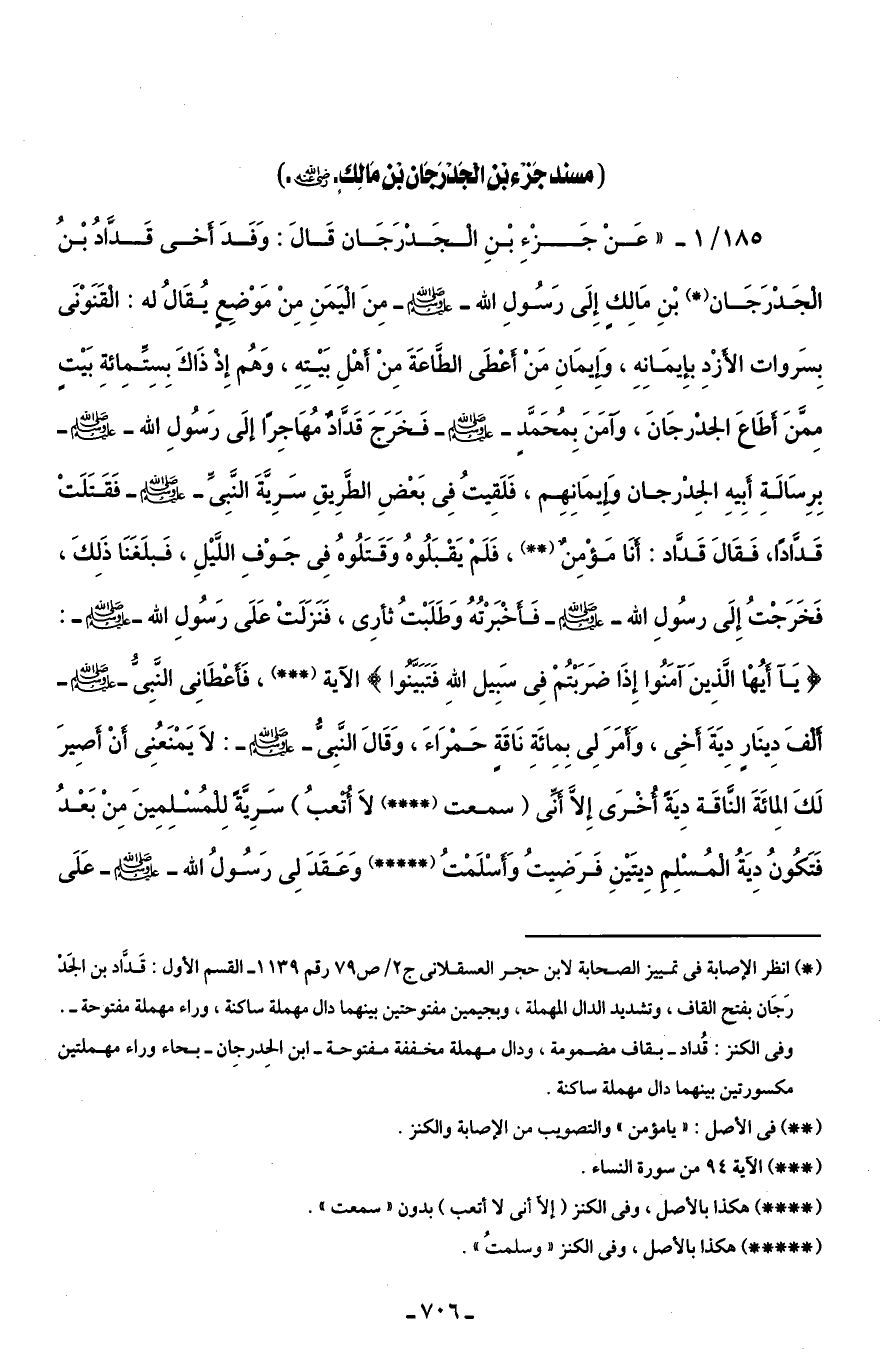 ( مسند جَزْءِ بْنِ الْجَدْرَجَان بْنِ مَالِكٍ . رضي الله عنه . )
١٨٥/ ١ ـ « عَـنْ جَـــزْءِ بْـنِ الْـجَـدْرَجَــان قَـالَ : وَفَـدَ أخـى قَـدَّادُ بْـنُ
الْجَـدْرَجَـان(*) بْنِ مَالِكٍ إِلَى رَسُـولِ الله ـ ﷺ ـ مِنَ الْيَمَنِ مِنْ مَوْضِعٍ يُـقَالُ له : الْقَنَوْنَى
بِسَروات الأزْدِ بِإيمَـانِهِ ، وَإِيمَان مَنْ أعْطَى الطَّاعَةَ مِنْ أهْلِ بَيْـتِهِ ، وَهُم إِذْ ذَاكَ بِستِّـمائِة بَيْتٍ
مِمَّنَ أطَاعَ الجدْرجَانَ ، وَآمَنَ بِمُحَمَّدٍ ـ ﷺ ـ فَـخَرَجَ قَدَّادٌ مُهَاجِرًا إلَى رَسُولِ الله ـ ﷺ ـ
بِرِسَالَـةِ أبيهِ الجدْرجـان وإيمَـانِهِـم ، فَلَقِيتُ فِى بَعْضِ الطَّرِيقِ سَـرِيَّةَ النَّبِىِّ ـ ﷺ ـ فَقَـتَلَتْ
قَـدَّادًا، فَـقَالَ قَـدَّاد : أنَا مَـؤْمِنٌ(**) ، فَلَمْ يَقْـبَلُوهُ وَقَـتَلُوهُ فِى جَـوْفِ اللَّيْلِ ، فَـبلَغَنَا ذَلِكَ ،
فَخَرَجْتُ إِلَى رسُولِ الله ـ ﷺ ـ فَـأخْبَرْتُهُ وَطَلَبْتُ ثأرِى ، فَنَزَلَتْ عَلَى رَسُولِ الله ـ ﷺ ـ :
﴿ يَـآ أيُّهَا الَّذِينَ آمَنُوا إِذَا ضَرَبْتُمْ فِى سَبِيلِ اللهِ فَتَبَيَّنُوا ﴾ الآية (***) ، فَأعْطَانِى النَّبِىُّ ـ ﷺ ـ
ألْفَ دِينَارٍ دِيَةَ أخِى ، وَأمَرَ لِى بِمِائَةِ نَاقَةٍ حَـمْرَاءَ ، وَقَالَ النَّبِىُّ ـ ﷺ ـ : لاَ يَمْنَعُنِى أنْ أصِيرَ
لَكَ المِائَةَ النَّاقَـة دِيَةً أُخْـرَى إِلاَّ أنِّى ( سـمـعت (****) لاَ أُتْعبُ ) سَـرِيَّةً للْمُسْلِمِينَ مِنْ بَعْـدُ
فَتَكُونُ دِيَةُ الْمُسْلِمِ دِيتَيْنِ فَـرَضِيتُ وَأسْلَمْتُ (*****) وَعَـقَدَ لِى رَسُـولُ الله ـ ﷺ ـ عَلَى
(*) انظر الإصابة فى تمييز الصـحابة لابن حجـر العسـقلانى ج٢/ ص٧٩ رقم ١١٣٩ـ القسـم الأول : قَـدَّاد بن الجَدْ
رَجَان بفتح القاف ، وتشديد الدال المهملة ، وبجيمين مفتوحتين بينهما دال مهملة ساكنة ، وراء مهملة مفتوحة ـ .
وفى الكنز : قُداد ـ بـقاف مضـمومة ، ودال مـهملة مخـففة مـفتوحـة ـ ابن الحِدرجان ـ بـحاء وراء مهـملتين
مكسورتين بينهما دال مهملة ساكنة .
(**) فى الأصل : « يامؤمن » والتصويب من الإصابة والكنز .
(***) الآية ٩٤ من سورة النساء .
(****) هكذا بالأصل ، وفى الكنز ( إلاَّ أنى لا أتعب ) بدون « سمعت » .
(*****) هكذا بالأصل ، وفى الكنز « وسلمتُ » .
ـ ٧٠٦ ـ